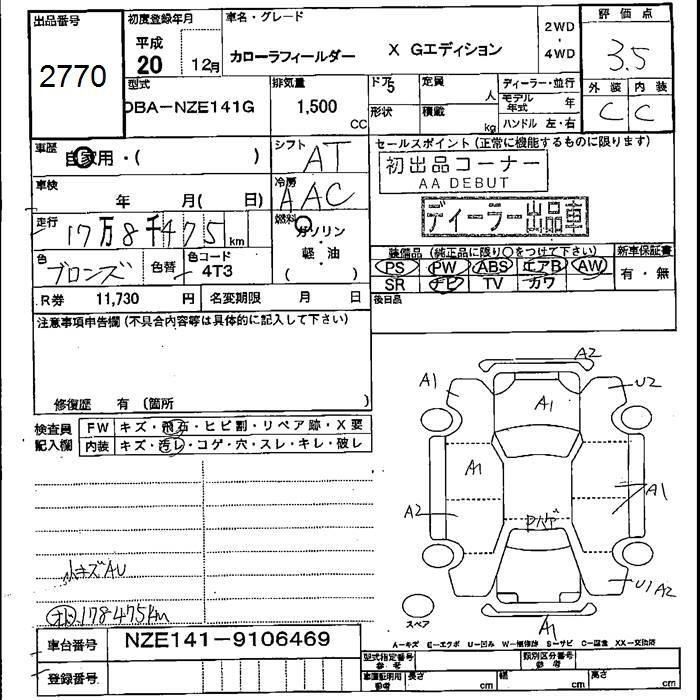 出品番号
2770
初度登録年月
平成
20 12月
車名・グレード
カローラフィールダー X Gエディション
2WD
・
4WD
評価点
3.5
外装 内装
C C
型式
DBA-NZE141G
排気量
1,500
CC
ドア
5
定員
人
形状
積載
kg
ディーラー・並行
モデル年式 年
ハンドル 左・右
車歴
自家用・( )
シフト
AT
車検
年 月( 日)
冷房
AAC
走行
17万8千475km
燃料
ガソリン
軽・油
( )
色
ブロンズ
色替
色コード
4T3
R券 11,730 円
名変期限 月 日
セールスポイント(正常に機能するものに限ります)
初出品コーナー
AA DEBUT
ディーラー出品車
装備品(純正品に限り○をつけて下さい)
PS PW ABS エアB AW
SR ナビ TV カワ
新車保証書
有・無
後日品
注意事項申告欄(不具合内容等は具体的に記入して下さい)
修復歴 有(箇所 )
検査員記入欄
FW キズ・飛石・ヒビ割・リペア跡・X要
内装 キズ・汚レ・コゲ・穴・スレ・キレ・破レ
小キズAU
178475km
A2
A1
U2
A1
A1
A2
A1
U1 A2
A1
スペア
A-キズ E-エクボ U-凹み W-補修跡 S-サビ C-腐食 XX-交換済
車台番号 NZE141-9106469
登録番号
型式指定番号
参考
類別区分番号
参考
車庫証明用
参考
長さ cm
幅 cm
高さ cm